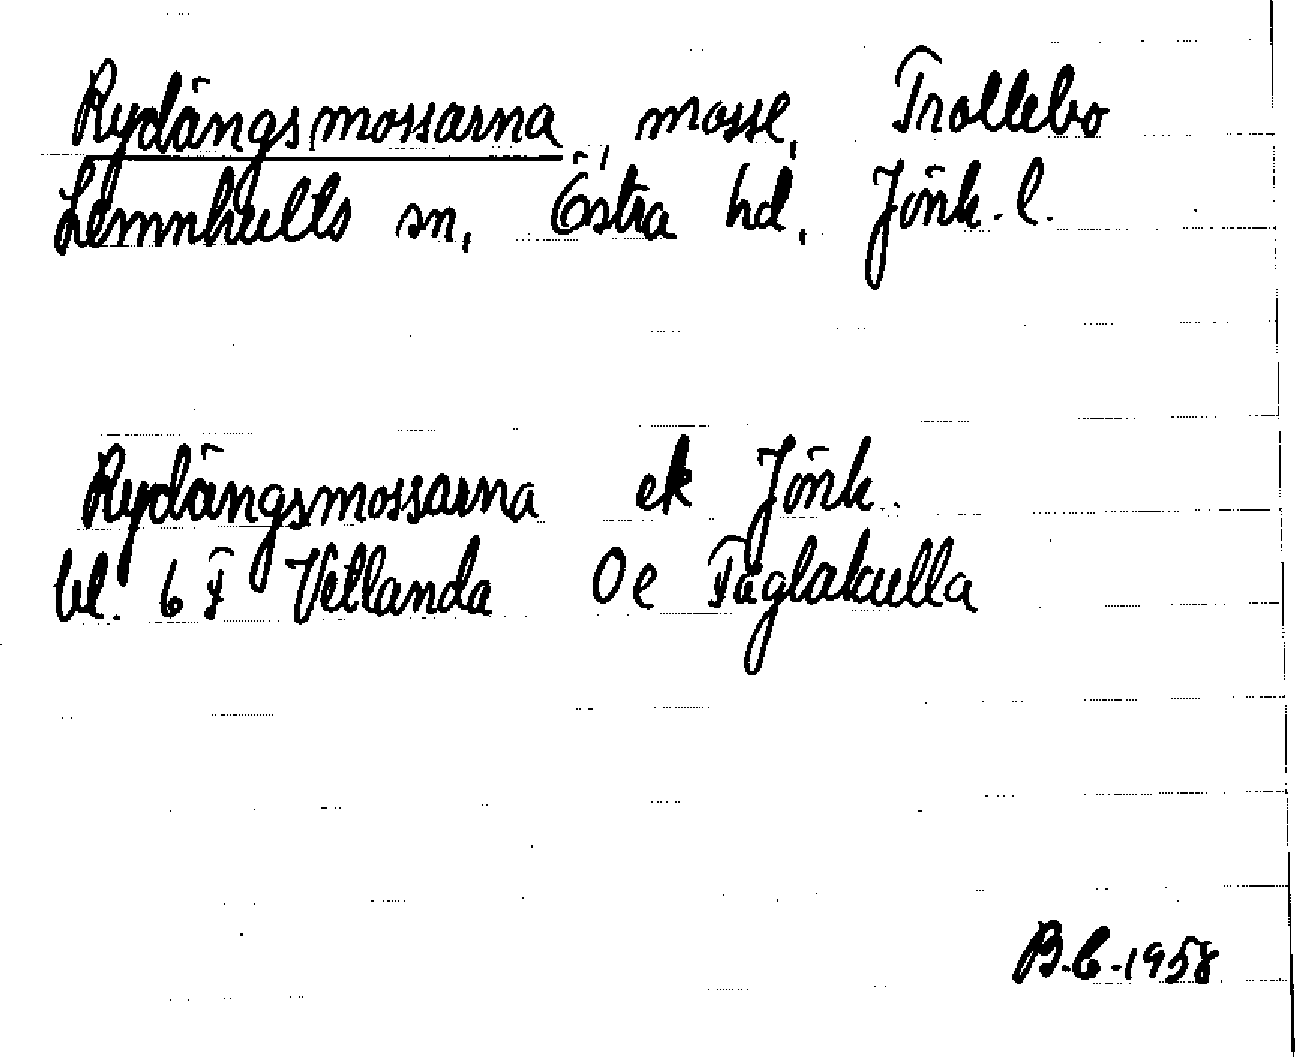 Rydängsmossarna, mosse, Trollebo
Lemnhults sn, Östra hd, Jönk. l.
Rydängsmossarna ek Jönk.
bl. 6 F Vetlanda 0 e Fåglakulla
B.C. 1958